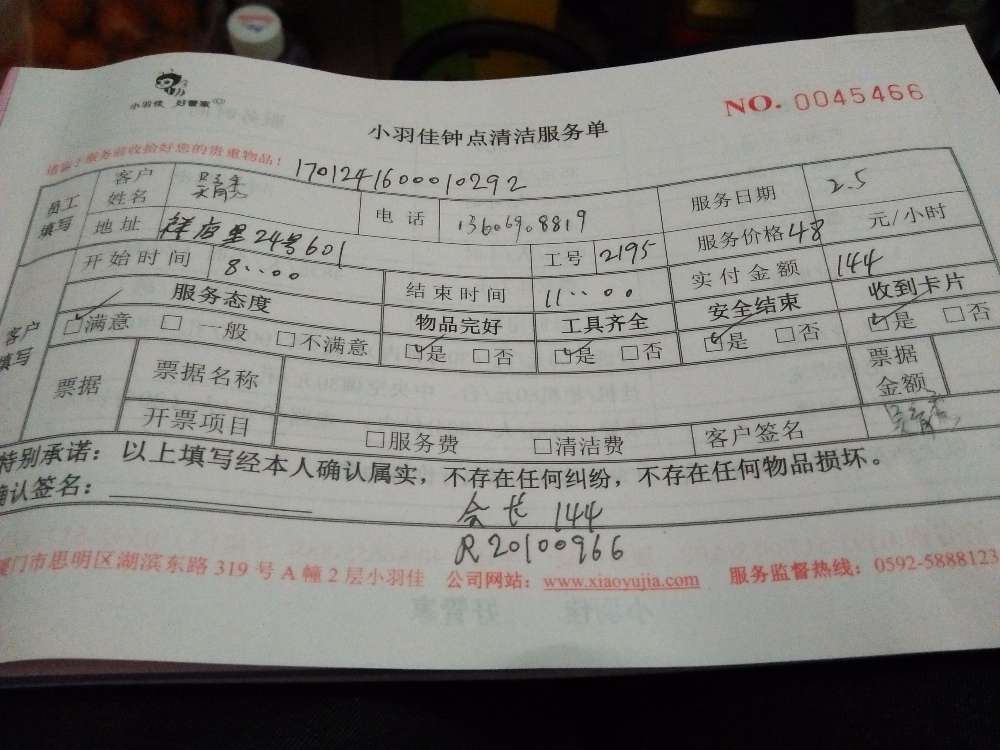 小羽佳 好管家
NO. 0045466
小羽佳钟点清洁服务单
服务前收拾好您的贵重物品！
170124160010292
员工填写 客户姓名 电话 13606908819 服务日期 2.5
地址 祥店里24号601 工号 2195 服务价格 48 元/小时
开始时间 8:00 结束时间 11:00 实付金额 144
客户填写 服务态度 物品完好 工具齐全 安全结束 收到卡片
☑满意 □一般 □不满意 ☑是 □否 ☑是 □否 ☑是 □否 ☑是 □否
票据 票据名称 票据金额
开票项目 □服务费 □清洁费 客户签名
特别承诺：以上填写经本人确认属实，不存在任何纠纷，不存在任何物品损坏。
确认签名：
会长 144
R20100966
厦门市思明区湖滨东路 319 号 A 幢 2 层小羽佳 公司网站：www.xiaoyujia.com 服务监督热线：0592-5888123